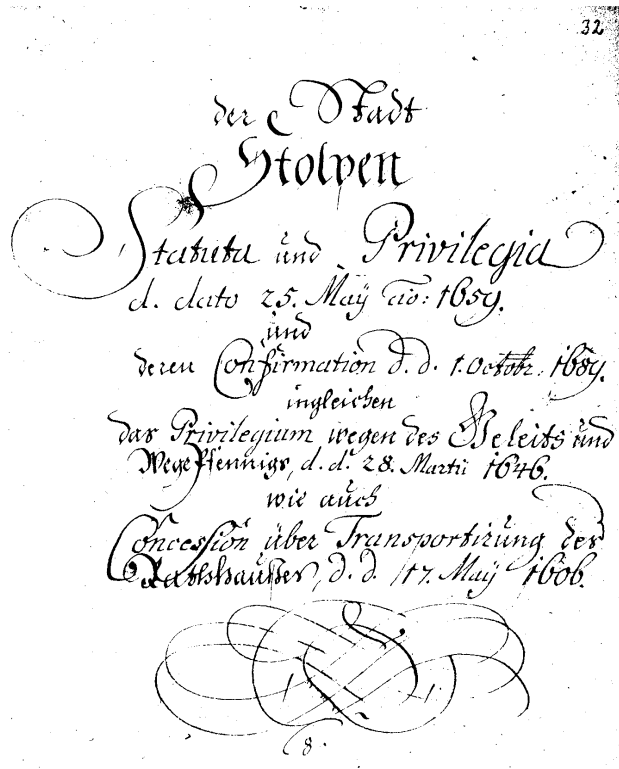 32
der Stadt
Stolpen
Statuta und Privilegia
d. dato 25. Maÿ ao: 1659.
und
deren Confirmation d. d. 1. Octobr: 1689.
ingleichen
das Privilegium wegen des Geleits und
Wege Pfennigs, d. d. 28. Martii 1646.
wie auch
Concession über Transportirung des
Rathhaußes, d. d. 17. Maÿ 1606.
8.